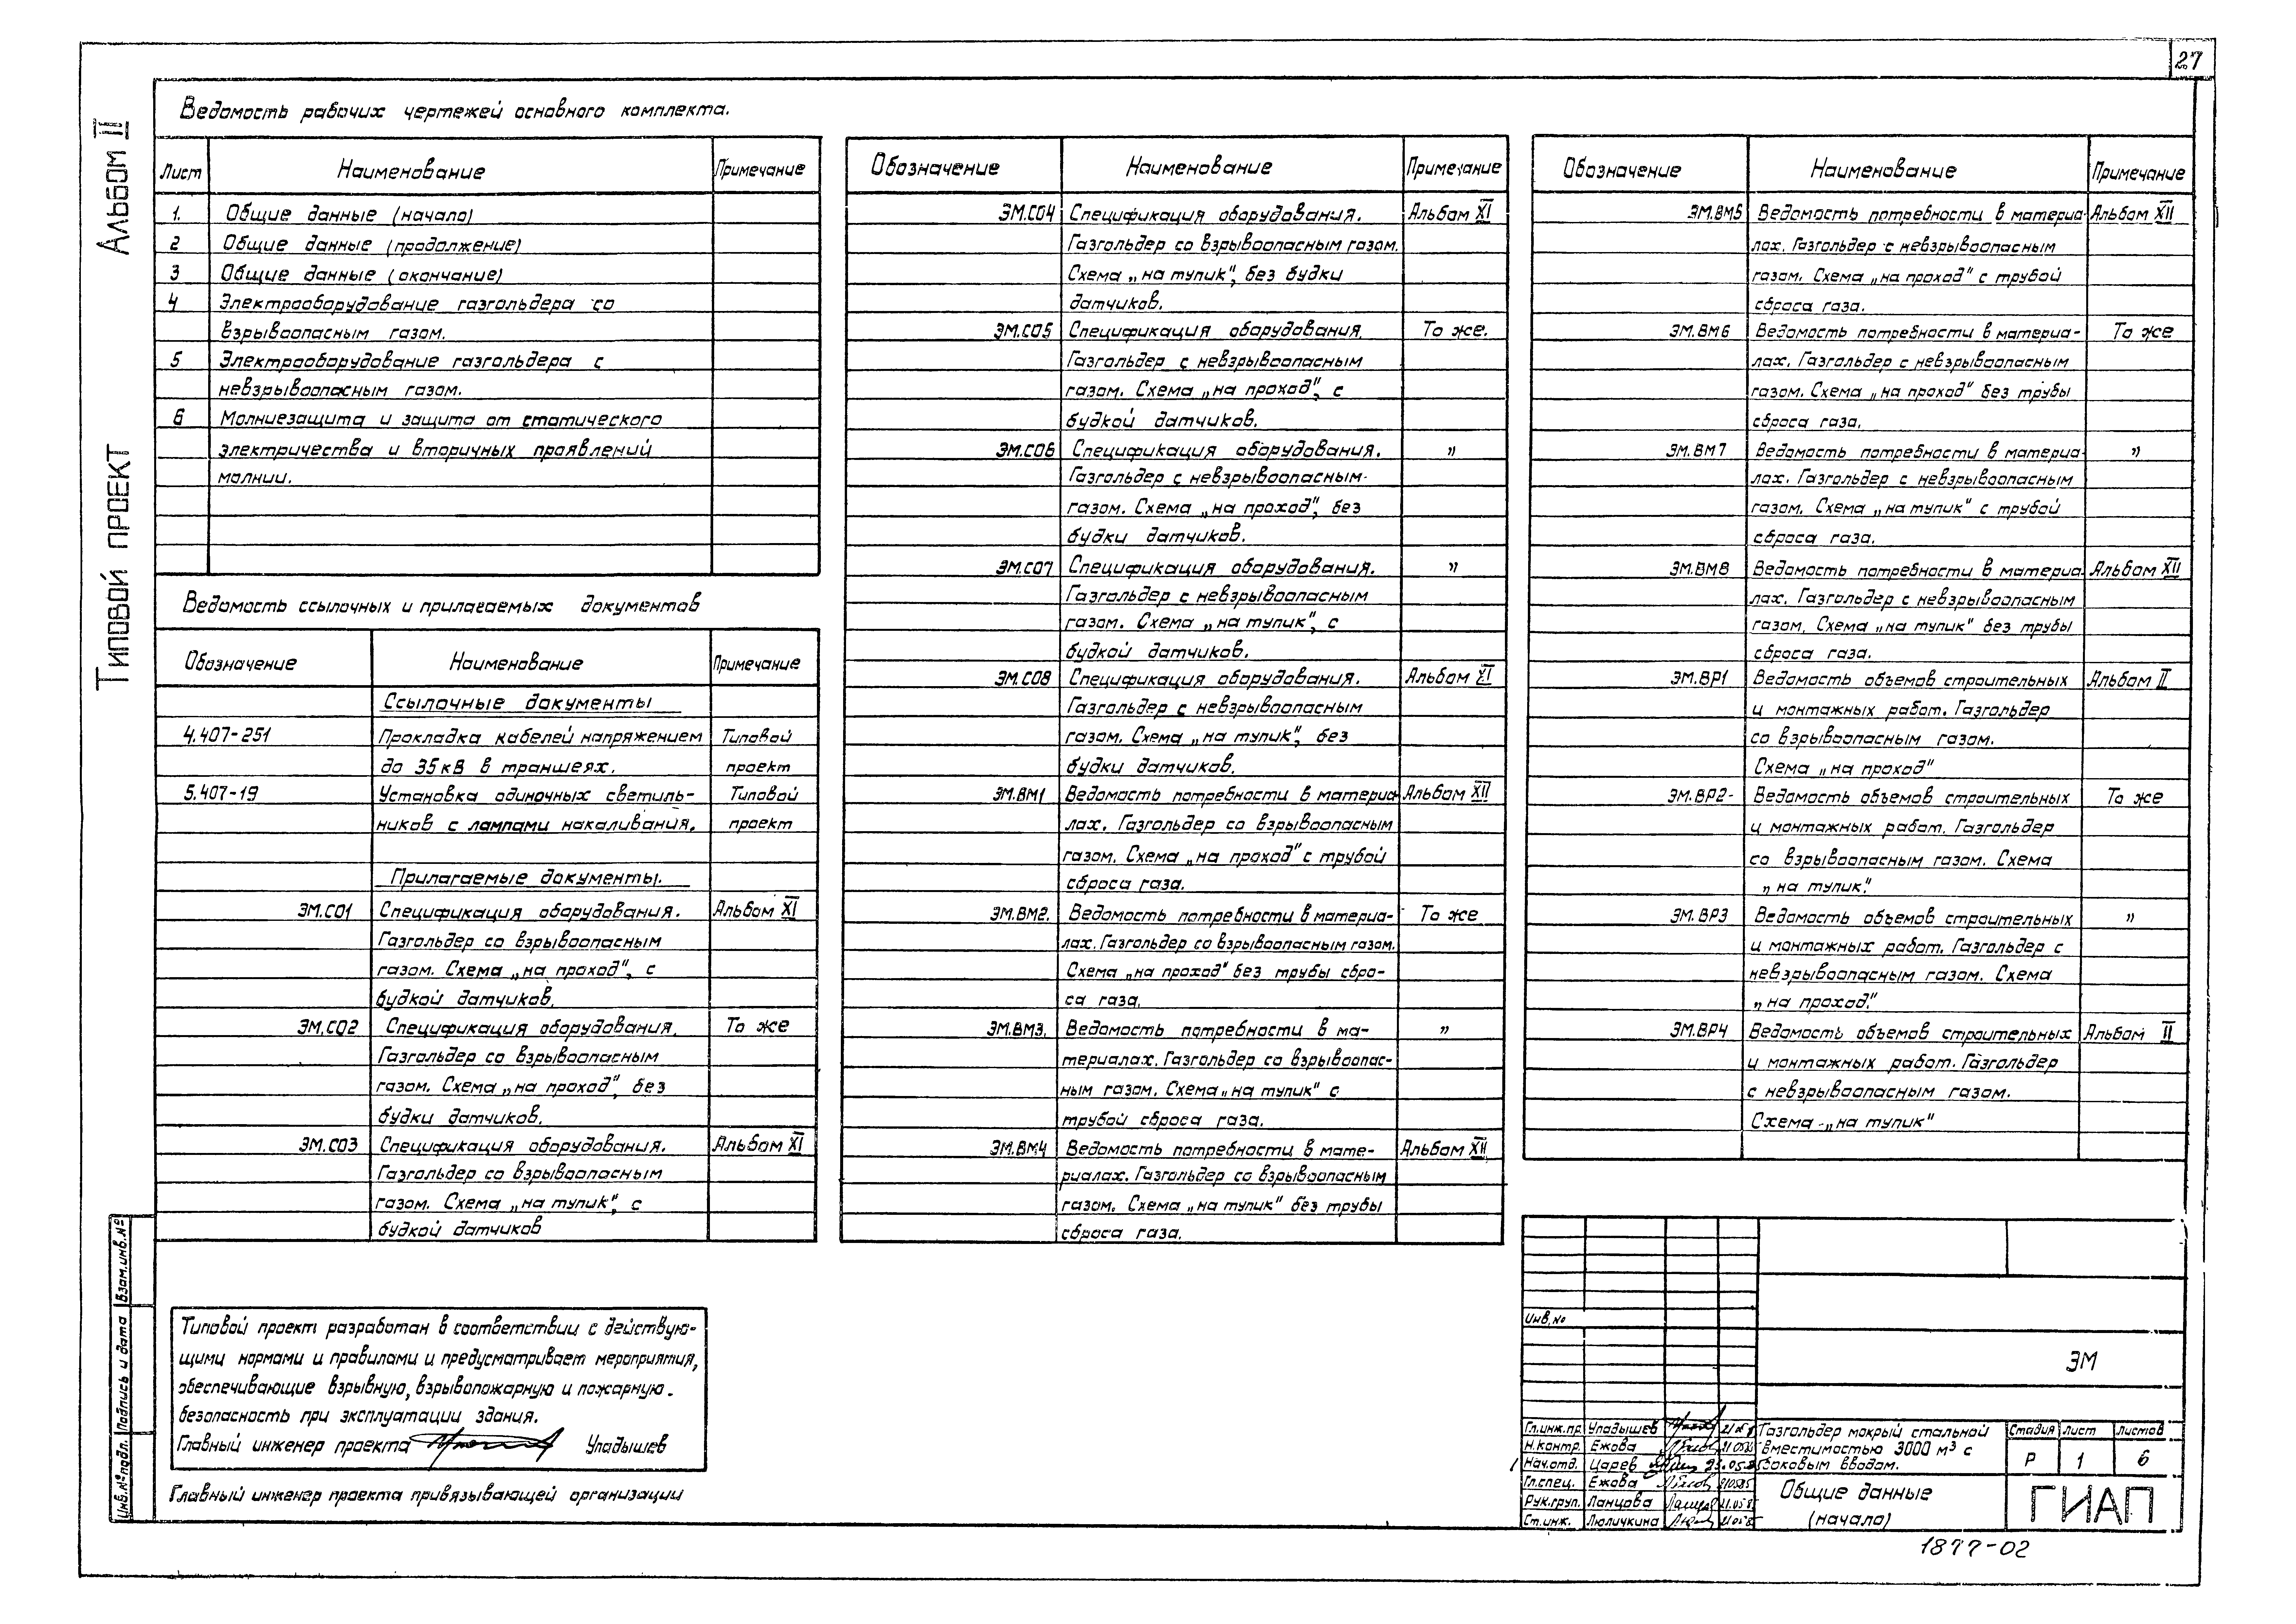 27
Альбом II
Типовой проект
Ведомость рабочих чертежей основного комплекта.
Лист Наименование Примечание
1. Общие данные (начало)
2 Общие данные (продолжение)
3 Общие данные (окончание)
4 Электрооборудование газгольдера со
взрывоопасным газом.
5 Электрооборудование газгольдера с
невзрывоопасным газом.
6 Молниезащита и защита от статического
электричества и вторичных проявлений
молнии.
Ведомость ссылочных и прилагаемых документов
Обозначение Наименование Примечание
Ссылочные документы
4.407-251 Прокладка кабелей напряжением Типовой
до 35кВ в траншеях. проект
5.407-19 Установка одиночных светиль- Типовой
ников с лампами накаливания. проект
Прилагаемые документы.
ЭМ.СО1 Спецификация оборудования. Альбом XI
Газгольдер со взрывоопасным
газом. Схема „на проход", с
будкой датчиков.
ЭМ.СО2 Спецификация оборудования. То же
Газгольдер со взрывоопасным
газом. Схема „на проход", без
будки датчиков.
ЭМ.СО3 Спецификация оборудования. Альбом XI
Газгольдер со взрывоопасным
газом. Схема „на тупик", с
будкой датчиков
Обозначение Наименование Примечание
ЭМ.СО4 Спецификация оборудования. Альбом XI
Газгольдер со взрывоопасным газом.
Схема „на тупик", без будки
датчиков.
ЭМ.СО5 Спецификация оборудования. То же.
Газгольдер с невзрывоопасным
газом. Схема „на проход", с
будкой датчиков.
ЭМ.СО6 Спецификация оборудования. "
Газгольдер с невзрывоопасным
газом. Схема „на проход", без
будки датчиков.
ЭМ.СО7 Спецификация оборудования. "
Газгольдер с невзрывоопасным
газом. Схема „на тупик", с
будкой датчиков.
ЭМ.СО8 Спецификация оборудования. Альбом XI
Газгольдер с невзрывоопасным
газом. Схема „на тупик", без
будки датчиков.
ЭМ.ВМ1 Ведомость потребности в материа- Альбом XII
лах. Газгольдер со взрывоопасным
газом. Схема „на проход" с трубой
сброса газа.
ЭМ.ВМ2. Ведомость потребности в материа- То же
лах. Газгольдер со взрывоопасным газом.
Схема „на проход" без трубы сбро-
са газа.
ЭМ.ВМ3. Ведомость потребности в ма- "
териалах. Газгольдер со взрывоопас-
ным газом. Схема „на тупик" с
трубой сброса газа.
ЭМ.ВМ4 Ведомость потребности в мате- Альбом XII
риалах. Газгольдер со взрывоопасным
газом. Схема „на тупик" без трубы
сброса газа.
Обозначение Наименование Примечание
ЭМ.ВМ5 Ведомость потребности в материа- Альбом XII
лах. Газгольдер с невзрывоопасным
газом. Схема „на проход" с трубой
сброса газа.
ЭМ.ВМ6 Ведомость потребности в материа- То же
лах. Газгольдер с невзрывоопасным
газом. Схема „на проход" без трубы
сброса газа.
ЭМ.ВМ7 Ведомость потребности в материа- "
лах. Газгольдер с невзрывоопасным
газом. Схема „на тупик" с трубой
сброса газа.
ЭМ.ВМ8 Ведомость потребности в материа- Альбом XII
лах. Газгольдер с невзрывоопасным
газом. Схема „на тупик" без трубы
сброса газа.
ЭМ.ВР1 Ведомость объемов строительных Альбом II
и монтажных работ. Газгольдер
со взрывоопасным газом.
Схема „на проход"
ЭМ.ВР2- Ведомость объемов строительных То же
и монтажных работ. Газгольдер
со взрывоопасным газом. Схема
„на тупик".
ЭМ.ВР3 Ведомость объемов строительных "
и монтажных работ. Газгольдер с
невзрывоопасным газом. Схема
„на проход."
ЭМ.ВР4 Ведомость объемов строительных Альбом II
и монтажных работ. Газгольдер
с невзрывоопасным газом.
Схема „на тупик"
Типовой проект разработан в соответствии с действую-
щими нормами и правилами и предусматривает мероприятия,
обеспечивающие взрывную, взрывопожарную и пожарную
безопасность при эксплуатации здания.
Главный инженер проекта Упадышев
Главный инженер проекта привязывающей организации
Инв.№подл. Подпись и дата Взам.инв.№
Инв.№
ЭМ
Гл.инж.пр. Упадышев
Н.контр. Ежова
Нач.отд. Царев
Гл.спец. Ежова
Рук.груп. Ланцова
Ст.инж. Люличкина
Газгольдер мокрый стальной
вместимостью 3000 м³ с
боковым вводом.
Стадия Лист Листов
Р 1 6
Общие данные
(начало)
ГИАП
1877-02